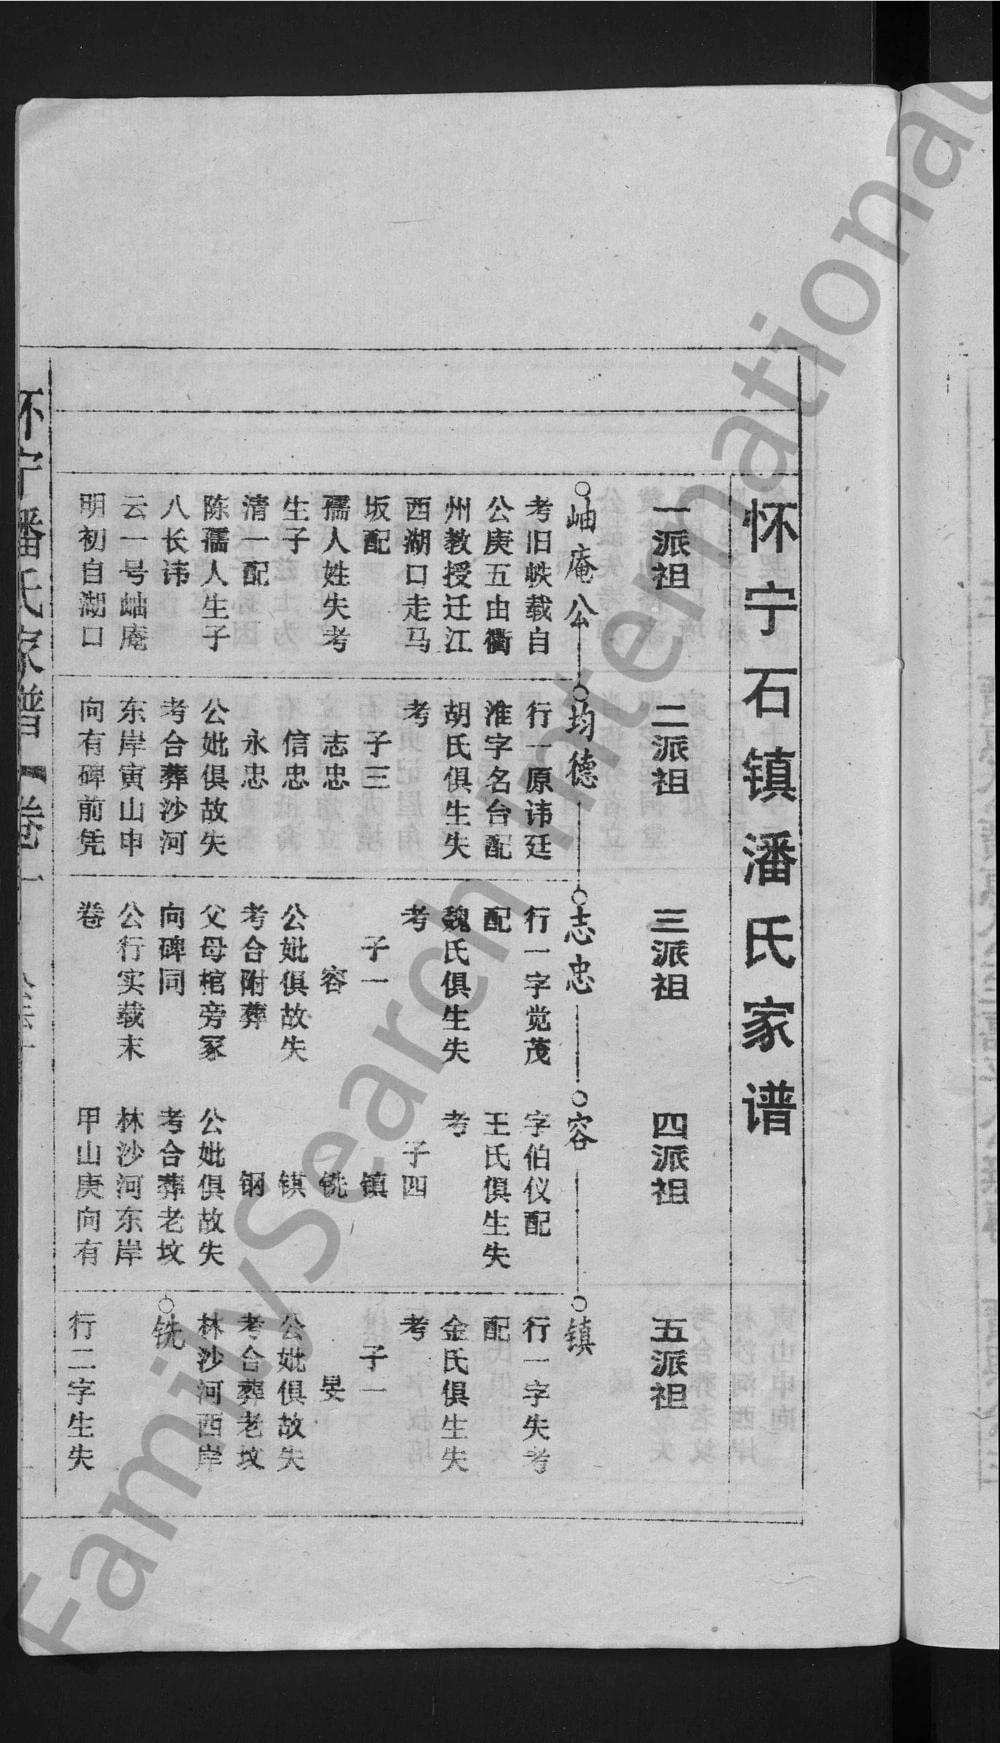 怀宁石镇潘氏家谱
一派祖
二派祖
三派祖
四派祖
五派祖
岫庵公
考旧帙载自
公庚五由衢
州教授迁江
西湖口走马
坂配
孺人姓失考
生子
清一配
陈孺人生子
八长讳
云一号岫庵
明初自湖口
均德
行一原讳廷
淮字名台配
胡氏俱生失
考
子三
志忠
信忠
永忠
公妣俱故失
考合葬沙河
东岸寅山申
向有碑前凭
志忠
行一字觉茂
配
魏氏俱生失
考
子一
容
公妣俱故失
考合附葬
父母棺旁冢
向碑同
公行实载末
卷
容
字伯仪配
王氏俱生失
考
子四
镇
铣
镆
钢
公妣俱故失
考合葬老坟
林沙河东岸
甲山庚向有
镇
行一字失考
配
金氏俱生失
考
子一
旻
公妣俱故失
考合葬老坟
林沙河西岸
铣
行二字生失
怀宁潘氏家谱 卷一
FamilySearch International